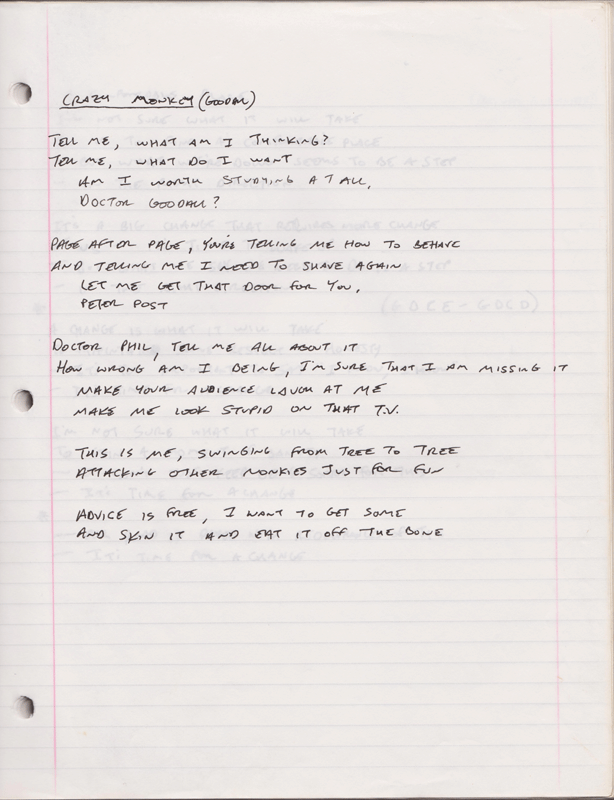 CRAZY MONKEY (GOODALL)
TELL ME, WHAT AM I THINKING?
TELL ME, WHAT DO I WANT
AM I WORTH STUDYING AT ALL,
DOCTOR GOODALL?
PAGE AFTER PAGE, YOU'RE TELLING ME HOW TO BEHAVE
AND TELLING ME I NEED TO SHAVE AGAIN
LET ME GET THAT DOOR FOR YOU,
PETER POST
DOCTOR PHIL, TELL ME ALL ABOUT IT
HOW WRONG AM I BEING, I'M SURE THAT I AM MISSING IT
MAKE YOUR AUDIENCE LAUGH AT ME
MAKE ME LOOK STUPID ON THAT T.V.
THIS IS ME, SWINGING FROM TREE TO TREE
ATTACKING OTHER MONKIES JUST FOR FUN
ADVICE IS FREE, I WANT TO GET SOME
AND SKIN IT AND EAT IT OFF THE BONE